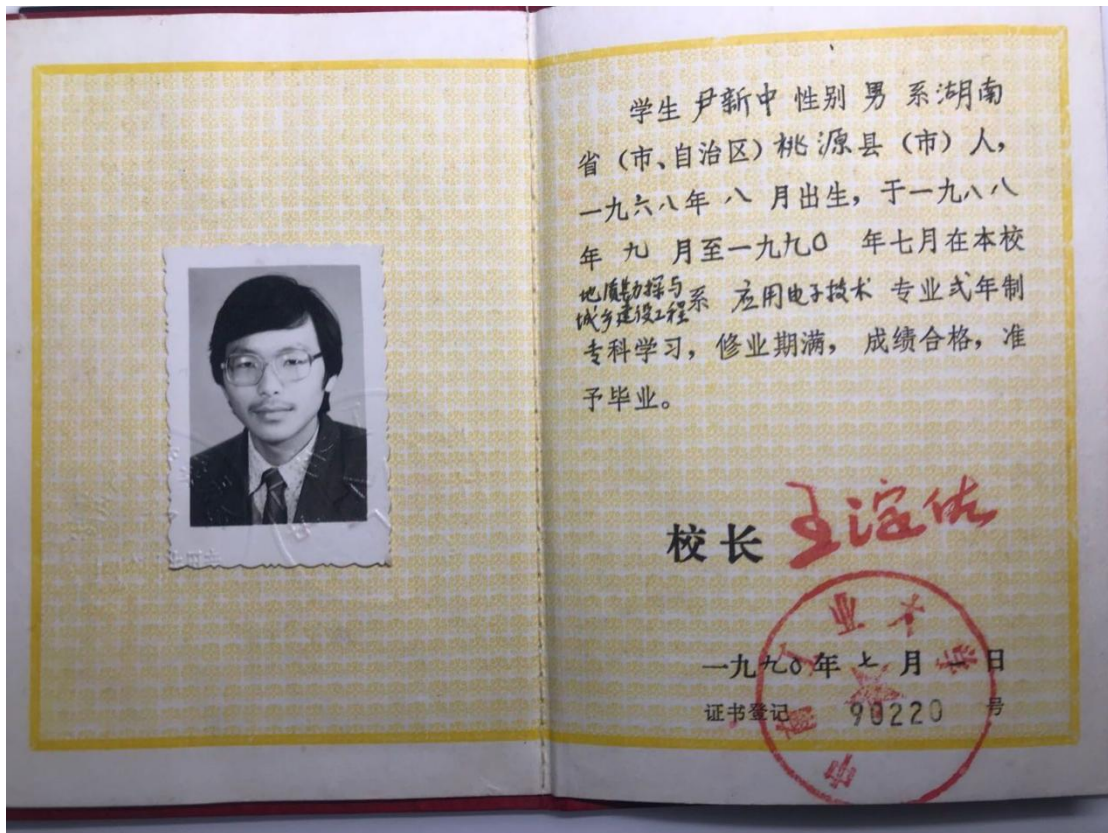 学生 尹新中 性别 男 系湖南
省（市、自治区）桃源县（市）人，
一九六八年 八 月出生，于一九八八
年 九 月至一九九〇 年七月在本校
地质勘探与
城乡建设工程系 应用电子技术 专业弍年制
专科学习，修业期满，成绩合格，准
予毕业。
校长 王淀佐
一九九〇年七月一日
证书登记 90220 号